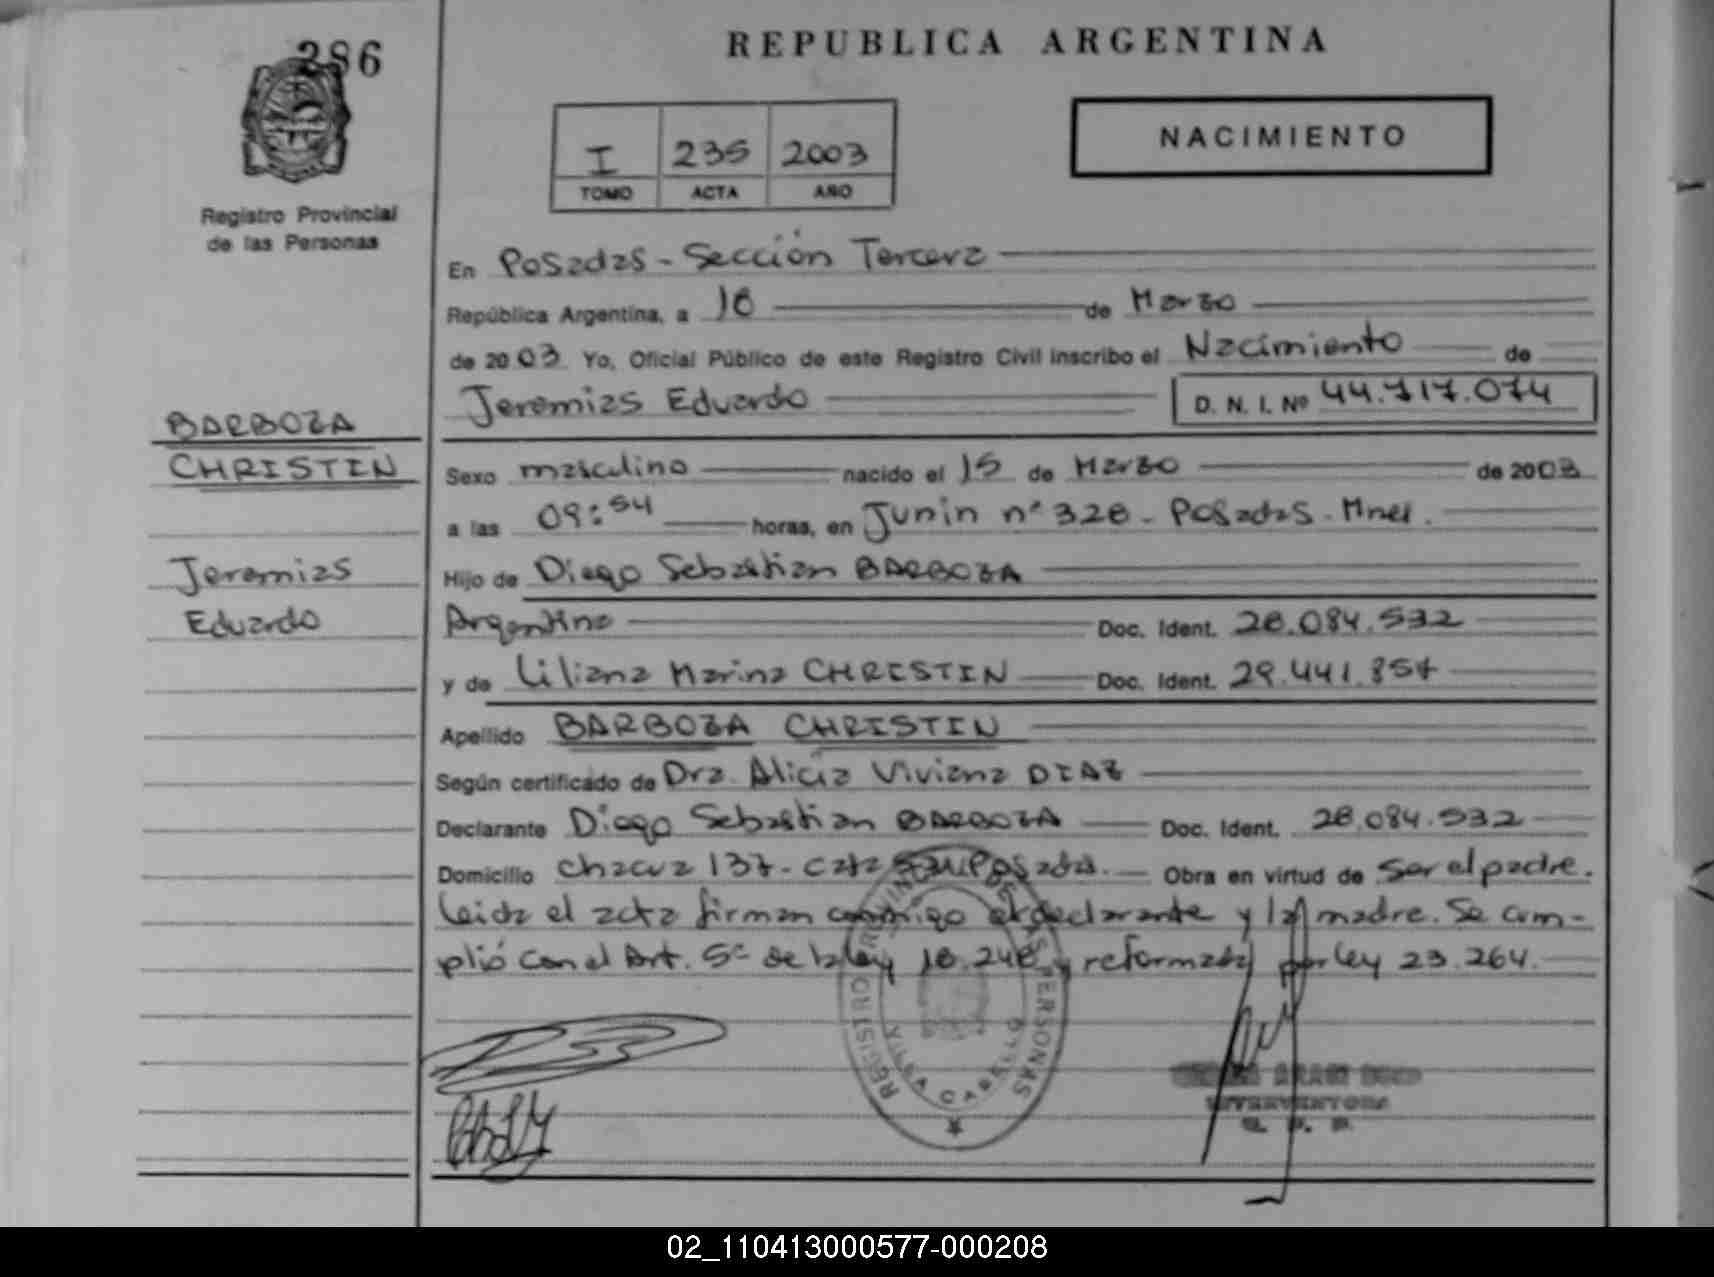 286
REPUBLICA ARGENTINA
NACIMIENTO
I 235 2003
TOMO ACTA AÑO
Registro Provincial
de las Personas
En Posadas - Sección Tercera
República Argentina, a 18 de Marzo
de 2003. Yo, Oficial Público de este Registro Civil inscribo el Nacimiento de
Jeremias Eduardo D. N. I. Nº 44.717.074
BARBOZA
CHRISTIN
Sexo masculino nacido el 15 de Marzo de 2003
a las 09:54 horas, en Junin nº 328 - Posadas - Mnes.
Jeremias
Hijo de Diego Sebastian BARBOZA
Eduardo
Argentino Doc. Ident. 28.084.532
y de Liliana Marina CHRISTIN Doc. Ident. 29.441.857
Apellido BARBOZA CHRISTIN
Según certificado de Dra. Alicia Viviana DIAZ
Declarante Diego Sebastian BARBOZA Doc. Ident. 28.084.532
Domicilio Chacra 137 - Casa Posadas. Obra en virtud de Ser el padre.
Leida el acta firman conmigo el declarante y la madre. Se cum-
plió con el Art. 5º de la ley 18.248 y reformada por ley 23.264.
REGISTRO PROVINCIAL DE LAS PERSONAS
VILLA CABELLO
INTERVENTORA
02_110413000577-000208